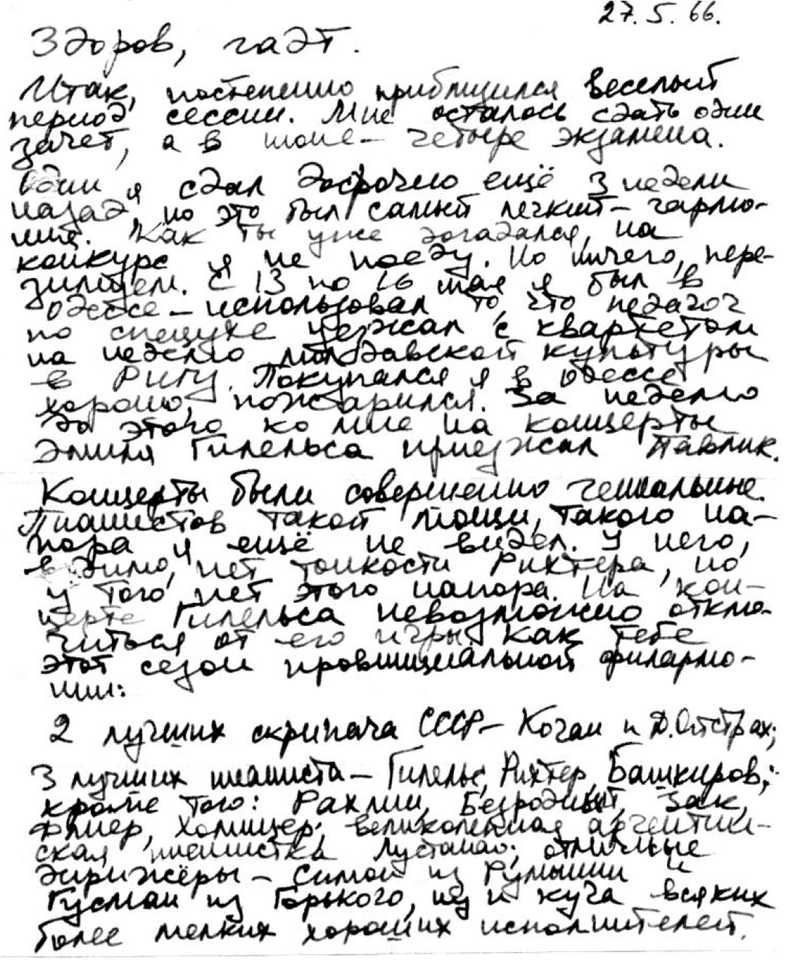 27.5.66.
Здоров, гадт.
Итак, постепенно приблизился веселый
период сессии. Мне осталось сдать один
зачет, а в июне – четыре экзамена.
Один я сдал досрочно ещё 3 недели
назад, но это был самый легкий – гармо-
ния. Как ты уже догадался, на
конкурс я не поеду. Но ничего, пере-
зимуем. С 13 по 16 мая я был в
Одессе – использовал то, что педагог
по спецухе уезжал с квартетом
на неделю молдавской культуры
в Ригу. Покупался я в Одессе
хорошо, пожарился. За неделю
до этого ко мне на концерты
Эмиля Гилельса приезжал Павлик.
Концерты были совершенно гениальные.
Пианистов такой мощи, такого на-
пора я ещё не видел. У него,
видимо, нет тонкости Рихтера, но
у того нет этого напора. На кон-
церте Гилельса невозможно отклю-
читься от его игры. Как тебе
этот сезон провинциальной филармо-
нии:
2 лучших скрипача СССР – Коган и Д.Ойстрах;
3 лучших пианиста – Гилельс, Рихтер, Башкиров;
кроме того: Рахлин, Безродный, Зак,
Флиер, Холицер; великолепная аргентин-
ская пианистка; отличные
дирижёры – Симон из Румынии и
Гусман из Горького, ну и куча всяких
более мелких хороших исполнителей.